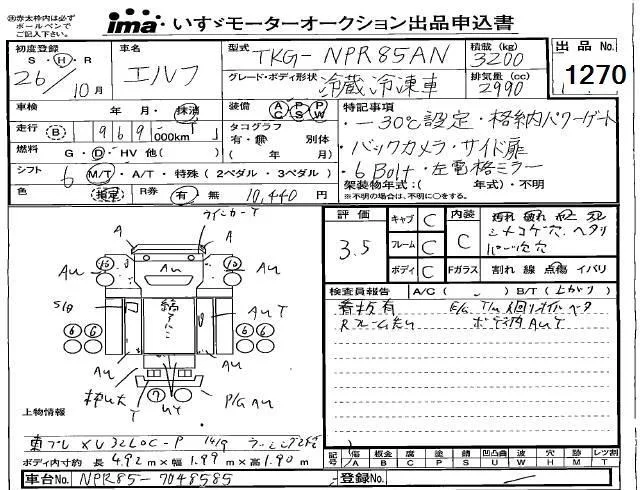 ㊟赤太枠内は必ず
ボールペンで
ご記入下さい。
ima いすゞモーターオークション出品申込書
初度登録
S・H・R
26/10月
車名
エルフ
型式 TKG-NPR85AN
積載(kg) 3200
グレード・ボディ形状 冷蔵冷凍車
排気量(cc) 2990
出品No.
1270
車検 年・月・抹消
装備 AC PS PW
走行 B 969 000km
タコグラフ
有・無 別体
(年/月)
燃料 G・D・HV 他( )
シフト 6 M/T・A/T・特殊(2ペダル・3ペダル)
色 指定
R券 有・無 10,440円
特記事項
・-30℃設定・格納パワーゲート
・バックカメラ・サイド扉
・6Bolt・左電格ミラー
架装物年式:( 年式)・不明
※不明の場合は、不明に○をする。
評価 3.5
キャブ C
フレーム C
ボディ C
内装 C
汚れ 破れ
シートコゲ穴 ヘタリ
Fガラス 割れ 線 点傷 イバリ
検査員報告 A/C( ) B/T(上がり)
看板有
ボデ内 AUT
ウインカーT
A
A
AU
AU
AU
10
10
AU T
6 6
6 6
AU
AU
T
7
UY
P/G AU
上物情報
東プレ XV32LOC-P 14/9
ボディ内寸約 長 4.92m×幅 1.99m×高 1.90m
記号 傷/A 板金/B 腐/C 塗/P 錆/S 凹凸曲/U 波/W 穴/H 跡/M レツ割/T
車台No. NPR85-7048585
登録No.